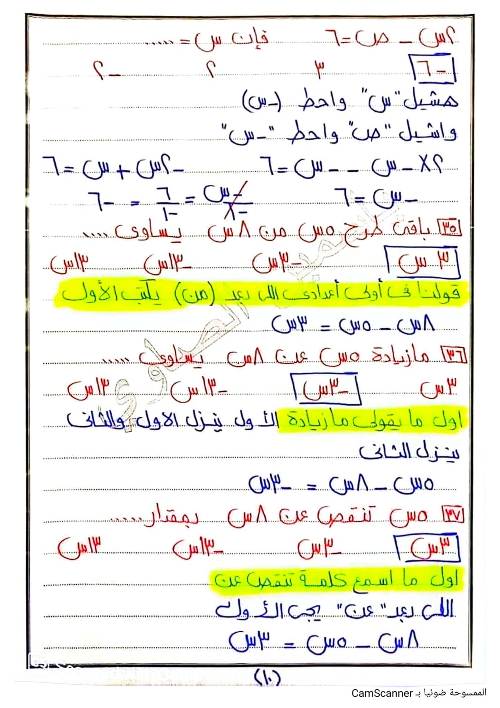 ٢س - ص = ٦ فإن س = .....
-٦ ٣ ٢ -٢
هشيل "س" واحط (-س)
واشيل "ص" واحط "-س"
٢ × -س - -س = ٦ -٢س + س = ٦
-س = ٦ -س/-١ = ٦/-١ = -٦
٣٥ باقى طرح ٥س من ٨س يساوى ....
٣س -٣س -١٣س ١٣س
قولنا فى أولى أعدادى اللى بعد (من) يكتب الأول
٨س - ٥س = ٣س
٣٦ ما زيادة ٥س عن ٨س يساوى .....
٣س -٣س -١٣س ١٣س
اول ما يقولى ما زيادة الأول ينزل الاول والثانى
ينزل الثانى
٥س - ٨س = -٣س
٣٧ ٥س تنقص عن ٨س بمقدار .....
٣س -٣س -١٣س ١٣س
اول ما اسمع كلمة تنقص عن
اللى بعد "عن" يجى الأول
٨س - ٥س = ٣س
(١٠)
الممسوحة ضوئيا بـ CamScanner